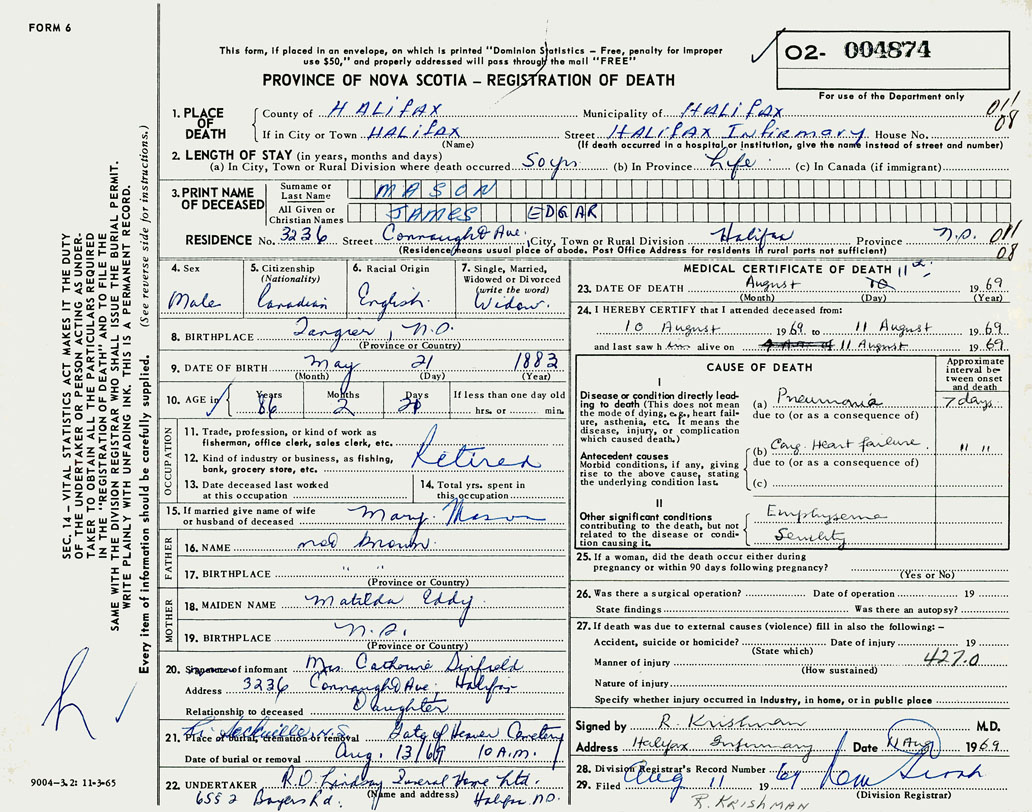 FORM 6
This form, if placed in an envelope, on which is printed "Dominion Statistics – Free, penalty for improper
use $50," and properly addressed will pass through the mail "FREE"
PROVINCE OF NOVA SCOTIA – REGISTRATION OF DEATH
02- 004874
For use of the Department only
011
08
1. PLACE OF DEATH
County of HALifAX Municipality of HALifAX
If in City or Town HALifAX Street HALifAX Infirmary House No.
(Name) (If death occurred in a hospital or institution, give the name instead of street and number)
2. LENGTH OF STAY (in years, months and days)
(a) In City, Town or Rural Division where death occurred 50yrs (b) In Province Life (c) In Canada (if immigrant)
3. PRINT NAME OF DECEASED
Surname or Last Name MASON
All Given or Christian Names JAMES EDGAR
RESIDENCE No. 3236 Street Connaught Ave. City, Town or Rural Division Halifax Province N.S. 011
08
(Residence means usual place of abode. Post Office Address for residents in rural parts not sufficient)
4. Sex Male
5. Citizenship (Nationality) Canadian
6. Racial Origin English
7. Single, Married, Widowed or Divorced (write the word) Widow.
8. BIRTHPLACE Tangier, N.S.
(Province or Country)
9. DATE OF BIRTH May 21 1883
(Month) (Day) (Year)
10. AGE in Years 86 Months 2 Days If less than one day old hrs. or min.
OCCUPATION
11. Trade, profession, or kind of work as fisherman, office clerk, sales clerk, etc.
Retired
12. Kind of industry or business, as fishing, bank, grocery store, etc.
13. Date deceased last worked at this occupation
14. Total yrs. spent in this occupation
15. If married give name of wife or husband of deceased Mary Mason
FATHER
16. NAME
17. BIRTHPLACE " "
(Province or Country)
MOTHER
18. MAIDEN NAME Matilda Eddy
19. BIRTHPLACE N.S.
(Province or Country)
20. Signature of informant Mrs. Catherine
Address 3236 Connaught Ave, Halifax
Relationship to deceased Daughter
21. Place of burial, cremation or removal Sackville N.S. Gate of Heaven Cemetery
Date of burial or removal Aug. 13/69 10 A.M.
22. UNDERTAKER R.D. Lindsay Funeral Home Ltd.
(Name and address)
6552 Bayers Rd. Halifax N.S.
MEDICAL CERTIFICATE OF DEATH
11th
23. DATE OF DEATH August 10 1969
(Month) (Day) (Year)
24. I HEREBY CERTIFY that I attended deceased from:
10 August 1969 to 11 August 1969
and last saw h alive on 11 August 1969
CAUSE OF DEATH
Approximate interval between onset and death
I
Disease or condition directly leading to death (This does not mean the mode of dying, e.g., heart failure, asthenia, etc. It means the disease, injury, or complication which caused death.)
(a) Pneumonia 7 days
due to (or as a consequence of)
Antecedent causes
Morbid conditions, if any, giving rise to the above cause, stating the underlying condition last.
(b) Cong. Heart failure " "
due to (or as a consequence of)
(c)
II
Other significant conditions contributing to the death, but not related to the disease or condition causing it.
Emphysema
Senility
25. If a woman, did the death occur either during pregnancy or within 90 days following pregnancy?
(Yes or No)
26. Was there a surgical operation? Date of operation 19
State findings Was there an autopsy?
27. If death was due to external causes (violence) fill in also the following: –
Accident, suicide or homicide? Date of injury 19
(State which)
427.0
Manner of injury
(How sustained)
Nature of injury
Specify whether injury occurred in industry, in home, or in public place
Signed by R. Krishman M.D.
Address Halifax Infirmary Date 11 Aug 1969
28. Division Registrar's Record Number
29. Filed Aug 11 19 69
(Division Registrar)
R. KRISHMAN
SEC. 14 – VITAL STATISTICS ACT MAKES IT THE DUTY
OF THE UNDERTAKER OR PERSON ACTING AS UNDER-
TAKER TO OBTAIN ALL THE PARTICULARS REQUIRED
IN THE "REGISTRATION OF DEATH" AND TO FILE THE
SAME WITH THE DIVISION REGISTRAR WHO SHALL ISSUE THE BURIAL PERMIT.
WRITE PLAINLY WITH UNFADING INK. THIS IS A PERMANENT RECORD.
Every item of information should be carefully supplied. (See reverse side for instructions.)
9004–3.2: 11-3-65